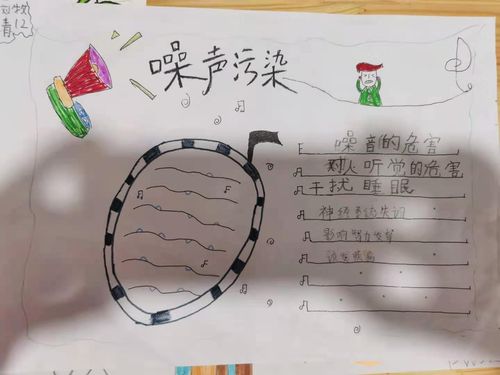 噪声污染
噪音的危害
对人听觉的危害
干扰睡眠
神经系统失调
影响智力发育
诱发疾病